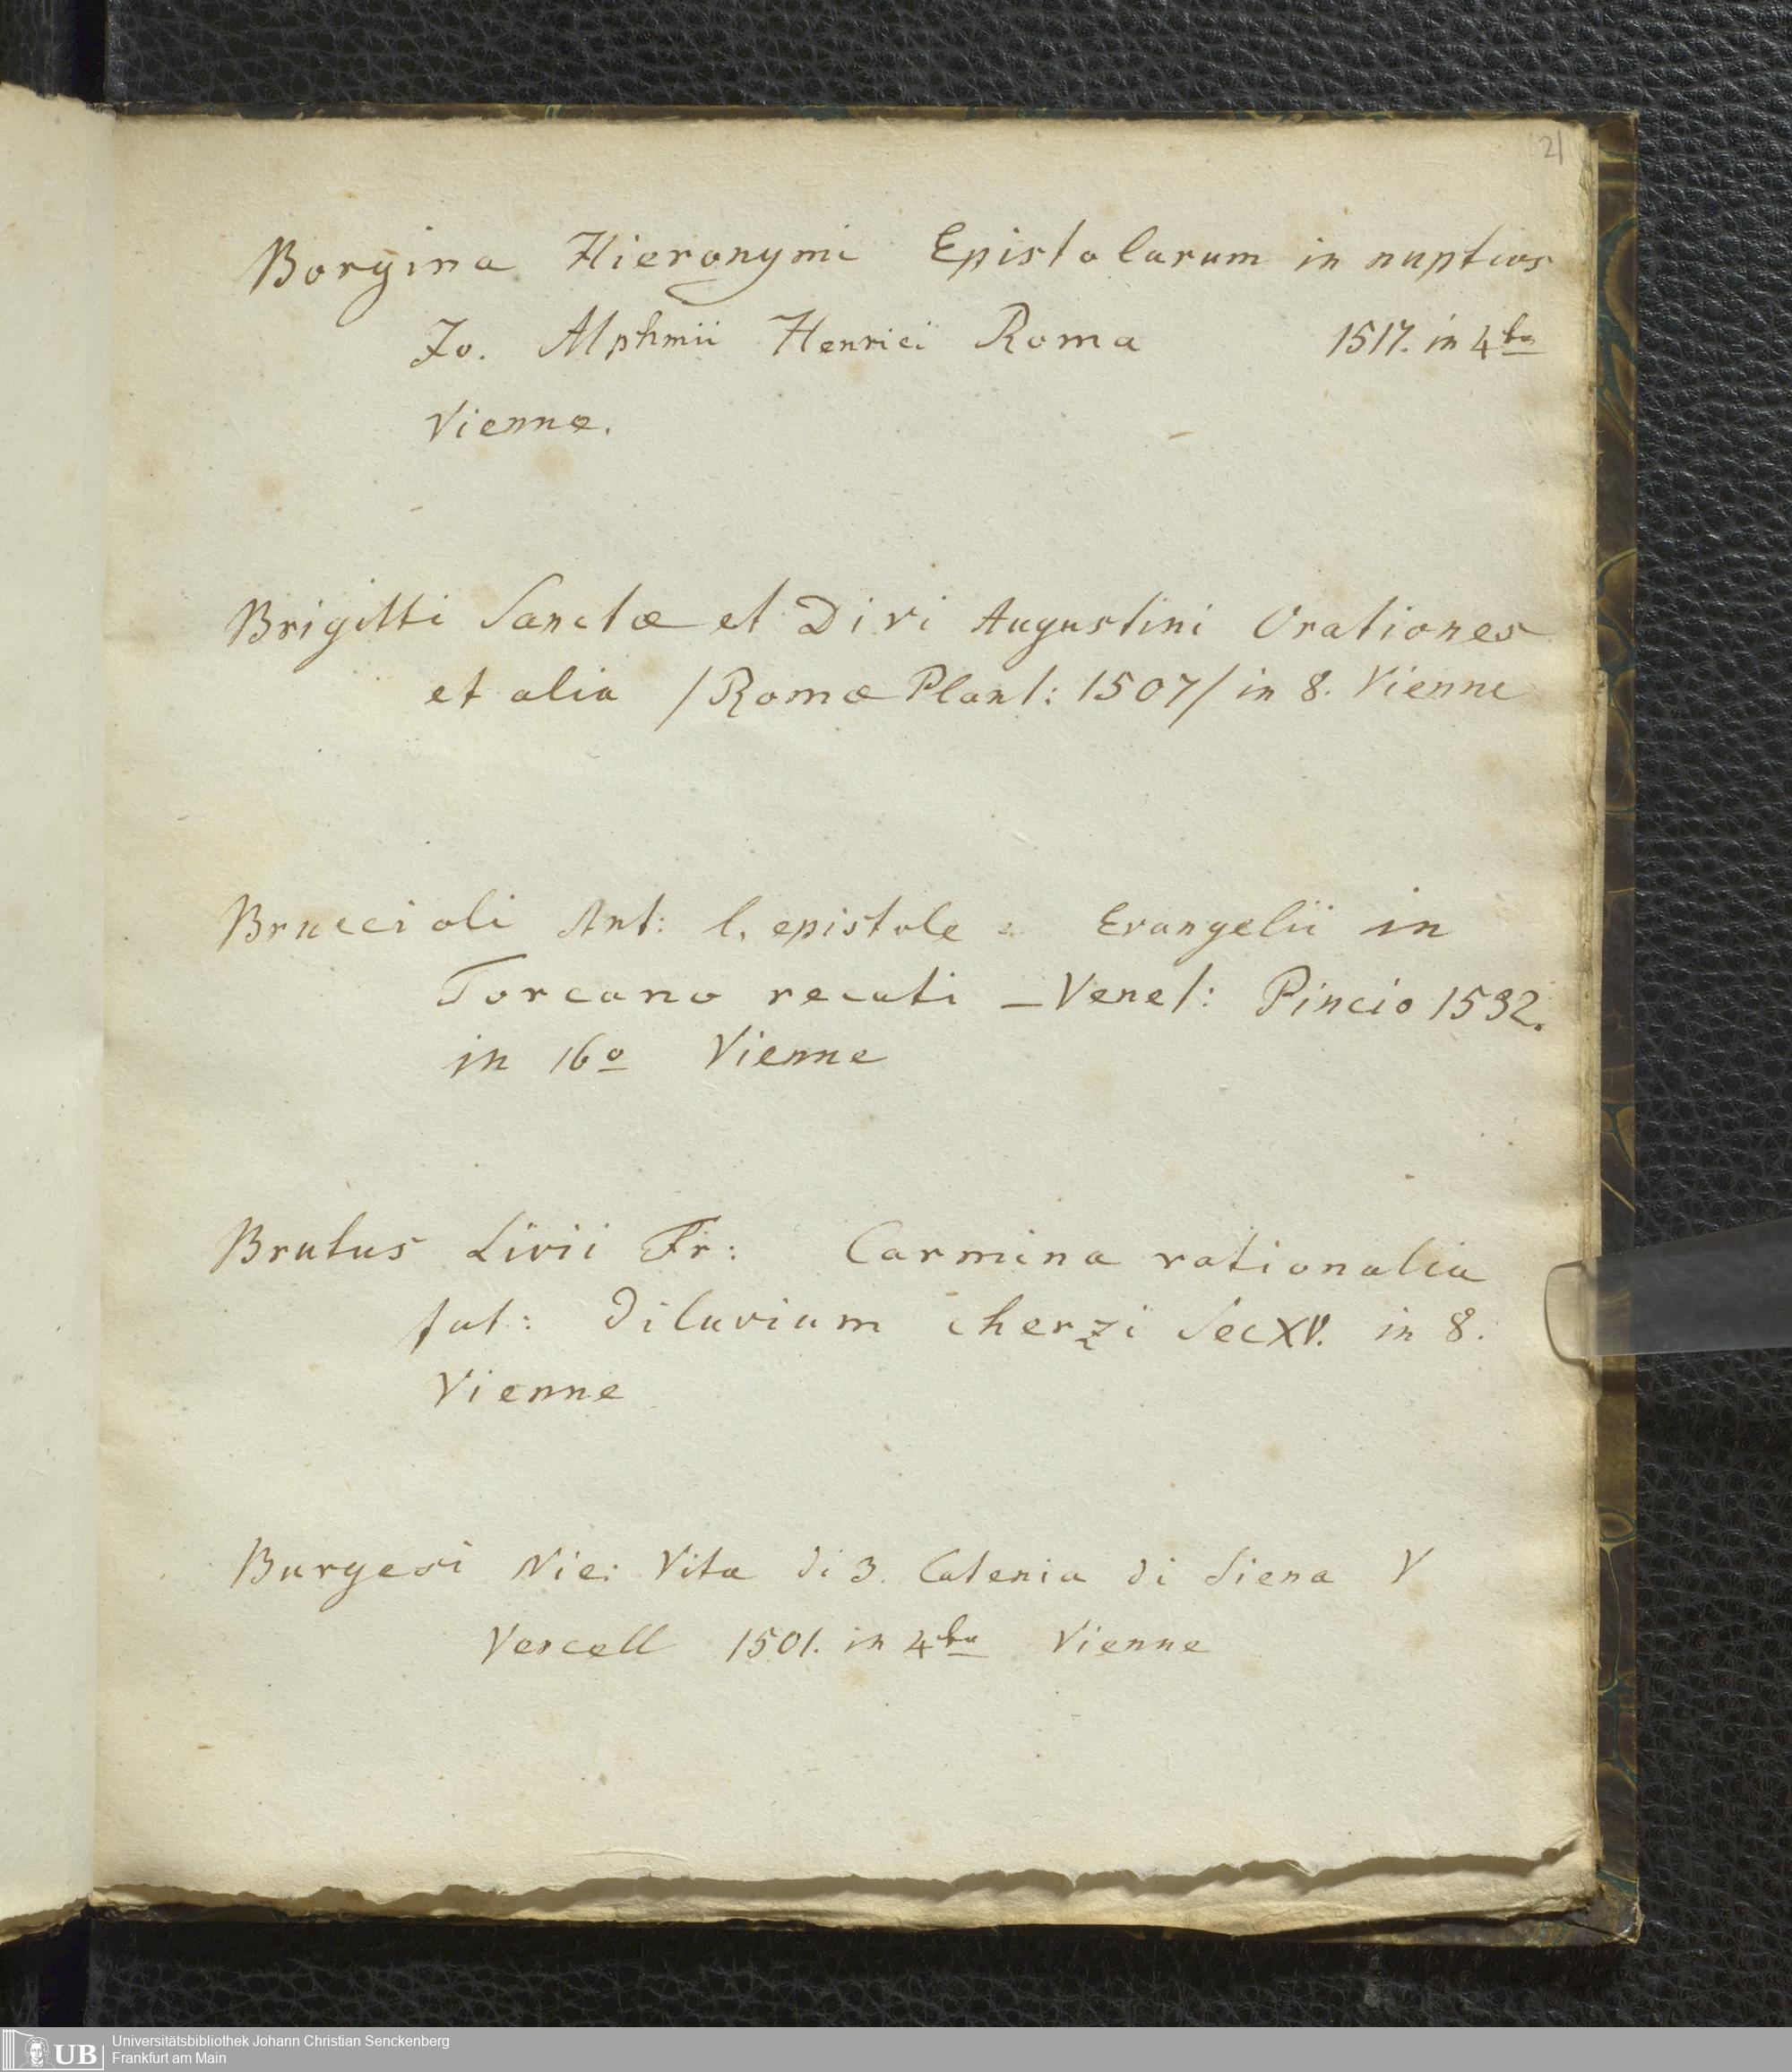 21
Borgina Hieronymi Epistolarum in nuptias
Jo. Alphmii Henrici Roma 1517. in 4to
Vienne.
Brigitti Sanctæ et Divi Augustini Orationes
et alia /Romæ Plant: 1507/ in 8. Vienne
Bruccioli Ant: l. epistole e Evangelii in
Torcano recati – Venet: Pincio 1532.
in 16o Vienne
Brutus Livii Fr: Carmina rationalia
fut: Diluvium cherzi Sec XV. in 8.
Vienne
Burgesi Nic: Vita di 3. Catenia di Siena V
Vercell 1501. in 4to Vienne
UB Universitätsbibliothek Johann Christian Senckenberg
Frankfurt am Main